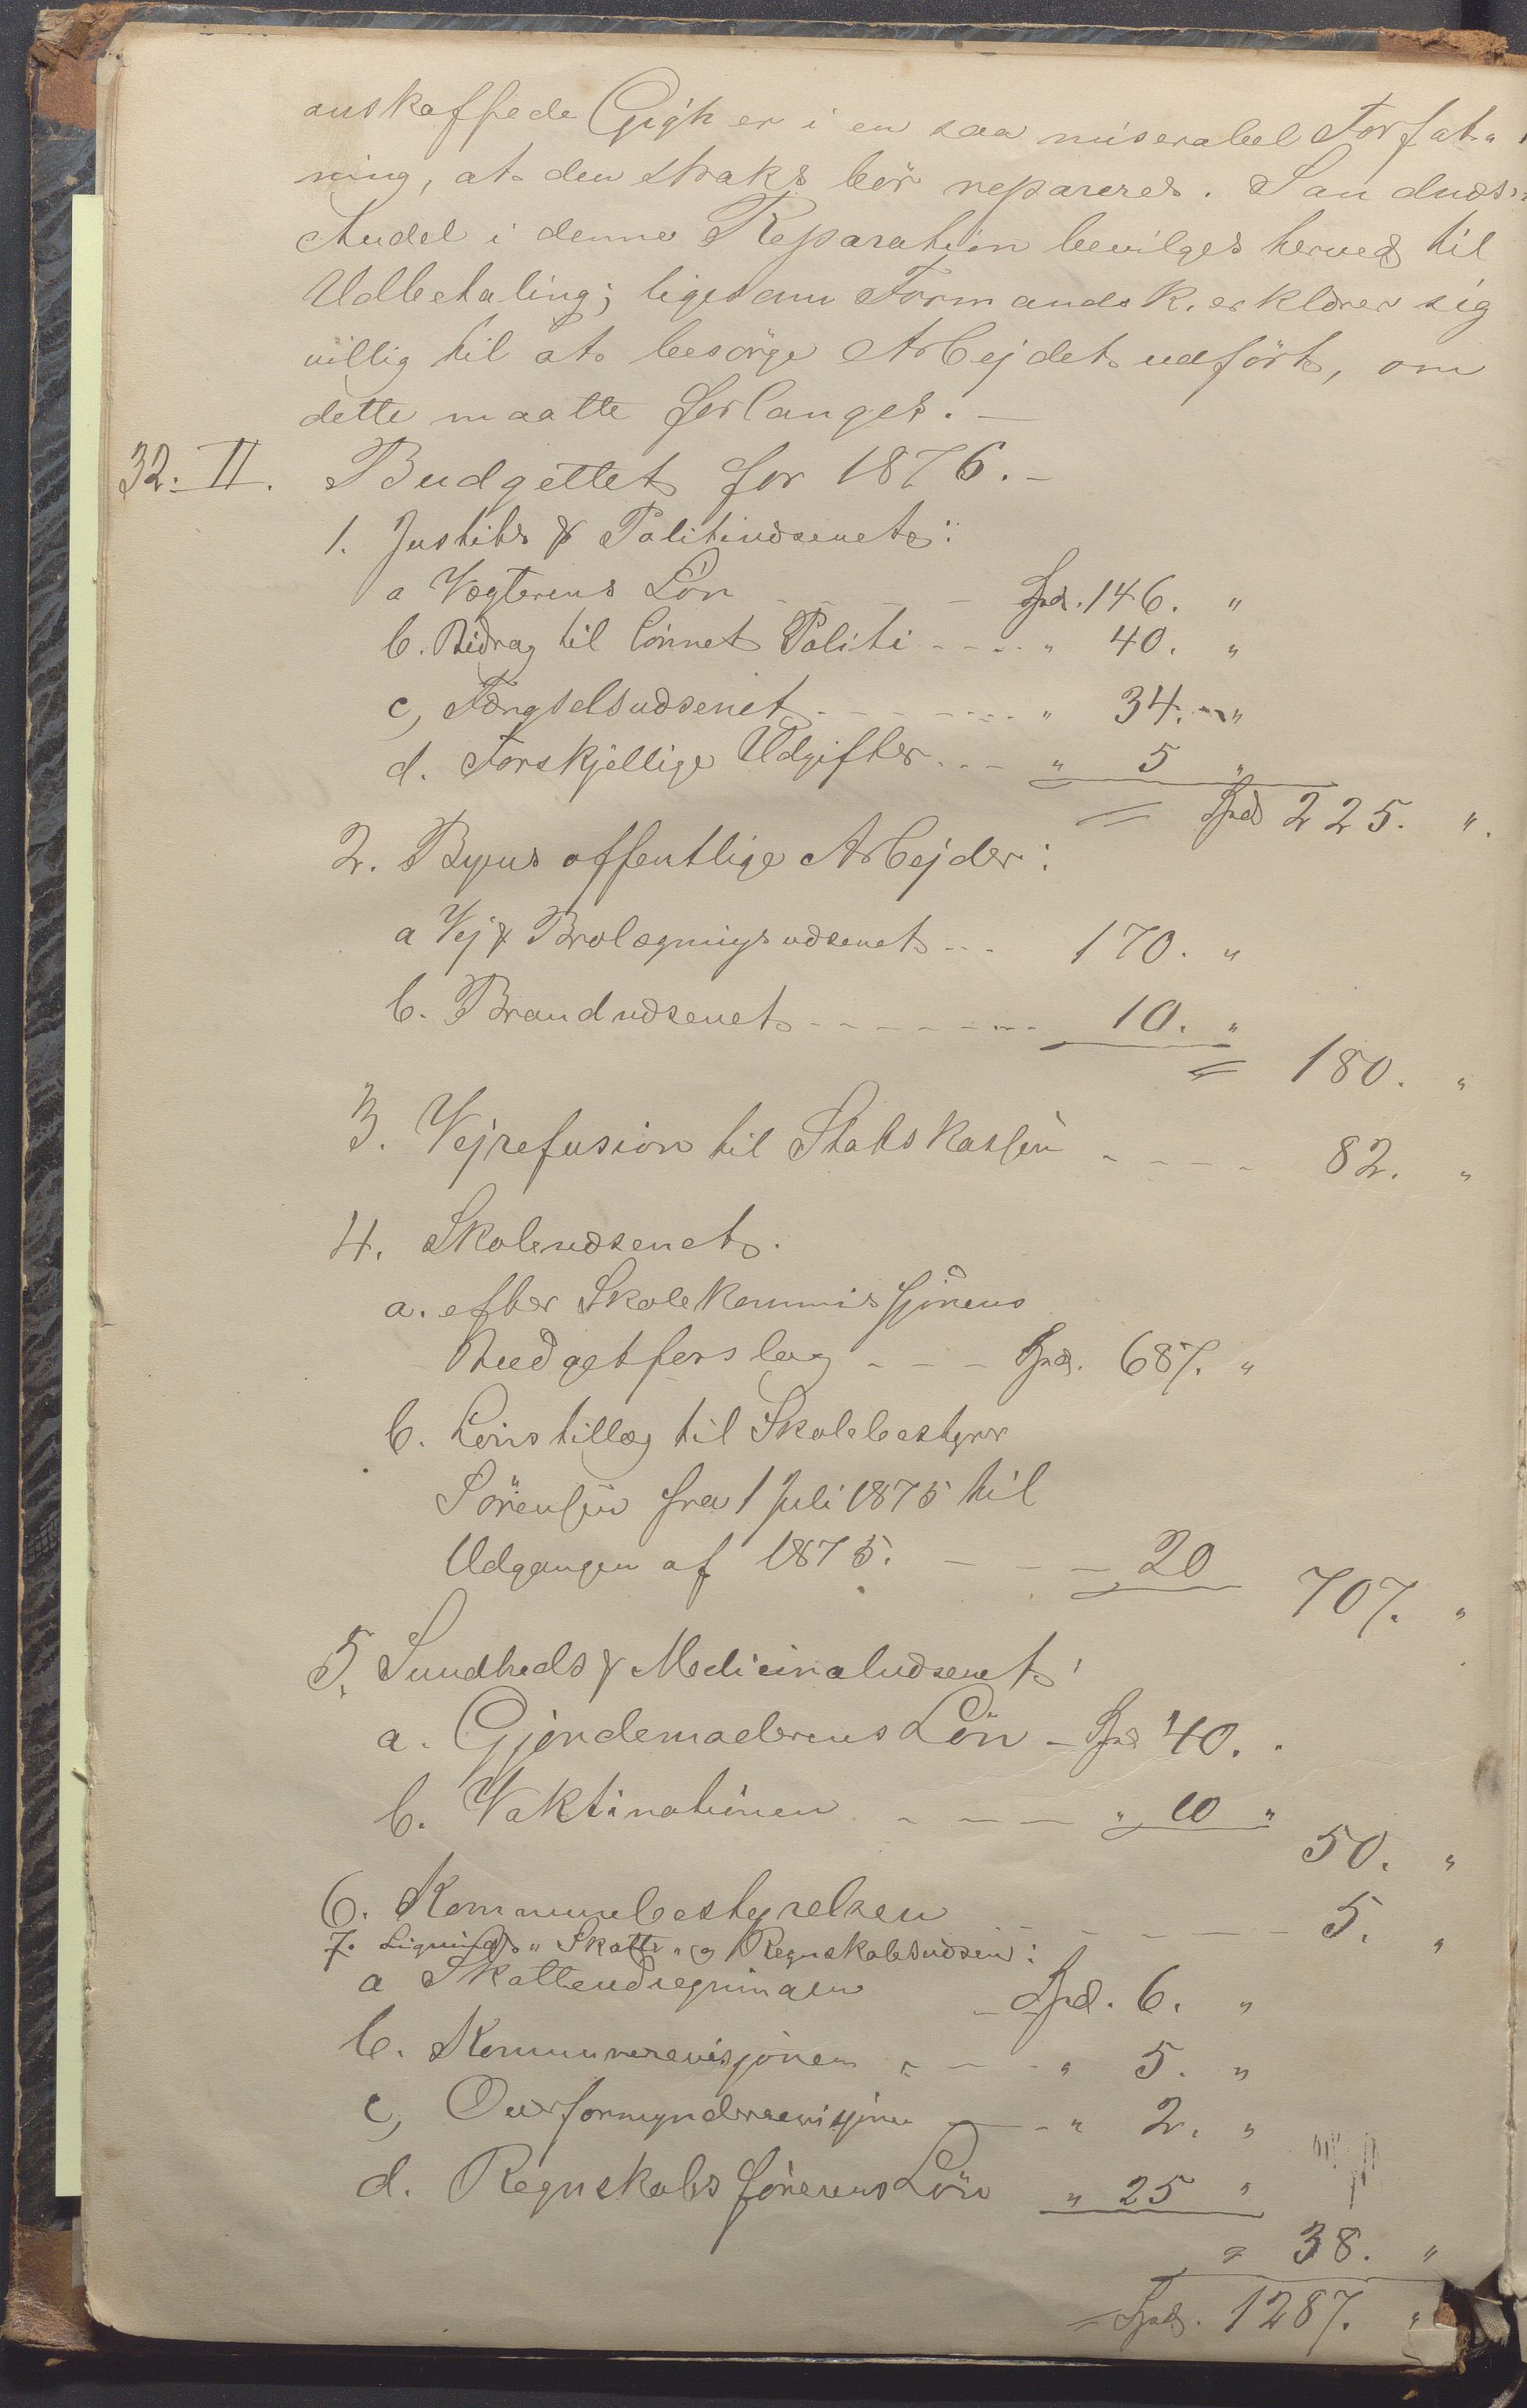 anskaffede Gigh er i en saa miserabel Forfat-
ning, at den straks bør repareres. Sandnæs
Andel i denne Reparation bevilges herved til
Udbetaling; ligesom Formandsk. erklærer sig
villig til at besørge Arbejdet udført, om
dette maatte forlanges. —
32. II. Budgettet for 1876. —
1. Justits & Politivæsenet:
a Vægterens Løn - - - - Spd. 146. "
b. Bidrag til lønnet Politi - - - - " 40. "
c, Fængselsvæsenet - - - - - - " 34. - "
d. Forskjellige Udgifter - - - " 5 "
= Spd 225. ".
2. Byens offentlige Arbejder:
a Vej & Brolægningsvæsenet - - - 170. "
b. Brandvæsenet - - - - - - - 10. "
= 180. "
3. Vejrefusion til Statskassen - - - - 82. "
4. Skolevæsenet.
a. efter Skolekommissjonens
Budgetforslag - - - Spd. 687. "
b. Lønstillæg til Skolebestyrer
Sørensen fra 1 Juli 1875 til
Udgangen af 1875. - - - 20
707. "
5. Sundheds & Medicinalvæsenet:
a. Gjordemoderens Løn - Spd 40. .
b. Vaktinationen - - - " 10 "
50. "
6. Kommunebestyrelsen - - - - - 5. "
7. Lignings " Skatte " og Regnskabsvæsen:
a Skatteudregningen - Spd. 6. "
b. Kommunerevisjonen - - - " 5. "
c, Overformynderrevisjonen - - " 2. "
d. Regnskabsførerens Løn " 25 "
= 38. "
= Spd. 1287. "